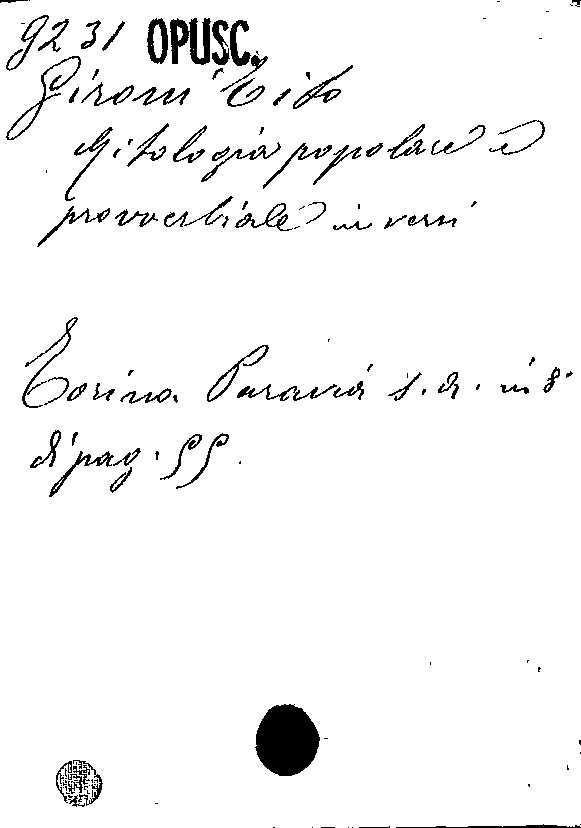 9231 OPUSC.
Gironi Tito
Mitologia popolare e
proverbiale in versi
Torino Paravia s.a. in 8°
di pag. 55.